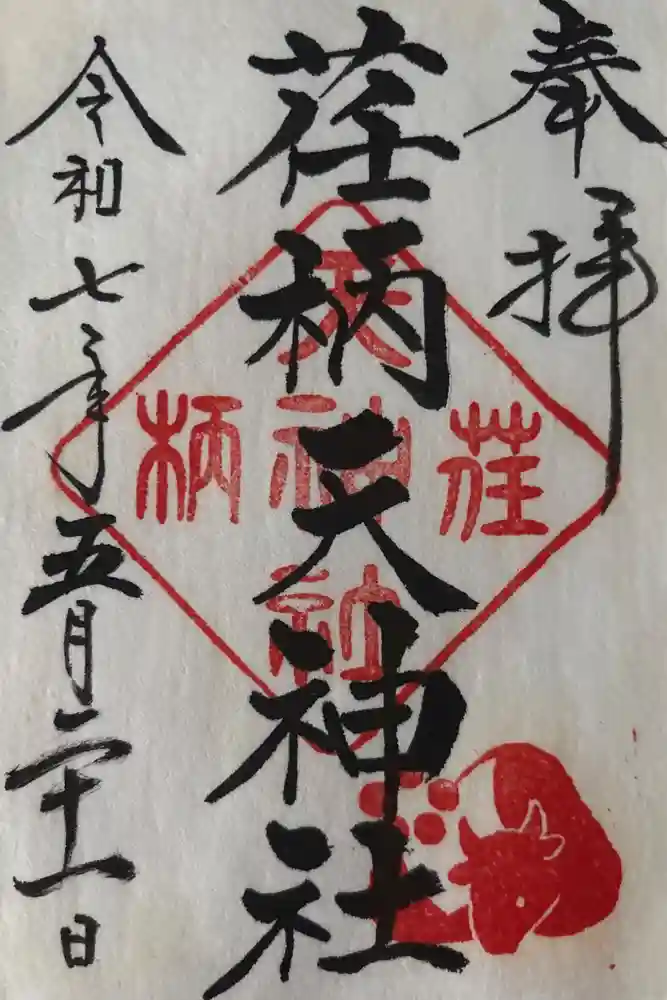 奉拝
荏柄天神社
天
荏神柄
社
令和七年五月二十一日